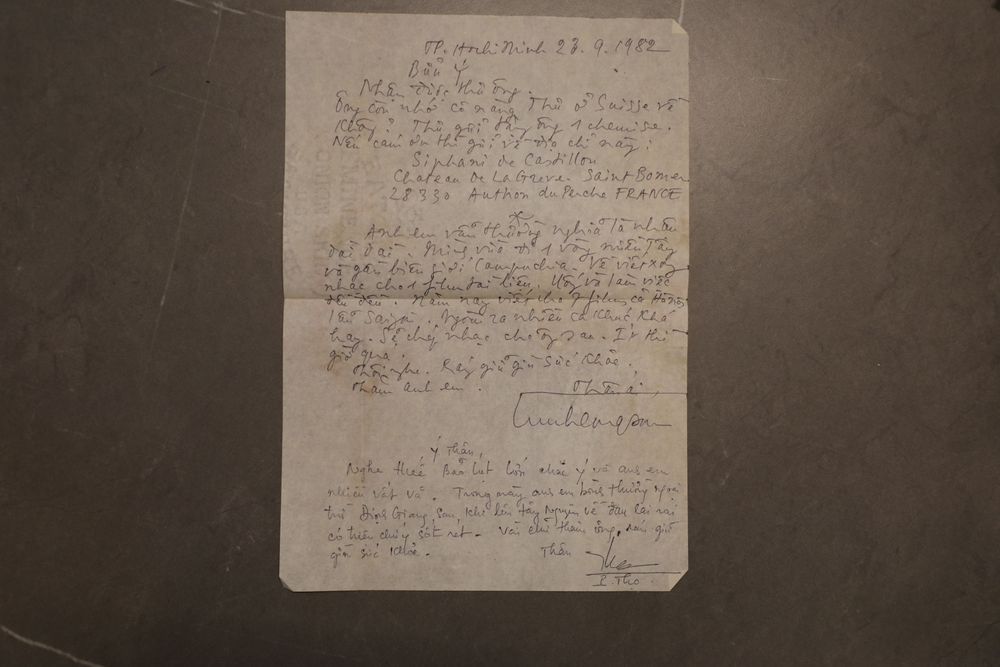 TP. Hochi Ninh 23.9.1982
Bửu Ý
Nhận được thư ông.
Ông còn nhớ cô nàng Thu ở Suisse về
không? Thu gửi tặng ông 1 chemise.
Nếu cám ơn thì gửi về địa chỉ này:
Siphani de Castillon
Chateau De La Greve. Saint Bomer
28330 Authon du Perche FRANCE
*
Anh em vẫn thường nghĩa là nhân
dài dài. Mình vừa đi 1 vòng miền Tây
và gần biên giới Campuchia. Về viết xong
nhạc cho 1 film tài liệu. Uống và làm việc
đều đều. Năm nay viết cho 7 film cả Hà nội
lẫn Saigon. Ngoài ra nhiều ca khúc khá
hay. Sẽ chép nhạc cho ông sau. Ít thì
giờ quá.
Thôi nghe. Ráng giữ gìn sức khỏe.
Thăm anh em. Thân ái,
Ý thân,
Nghe thế Bão lụt lớn chắc Ý và anh em
nhiều vất vả. Trong này anh em bình thường ngoại
trừ Định Giang sau khi lên Tây Nguyên về đau lai rai
có triệu chứng sốt rét. Vài chữ thăm ông, mong giữ
gìn sức khỏe. Thân